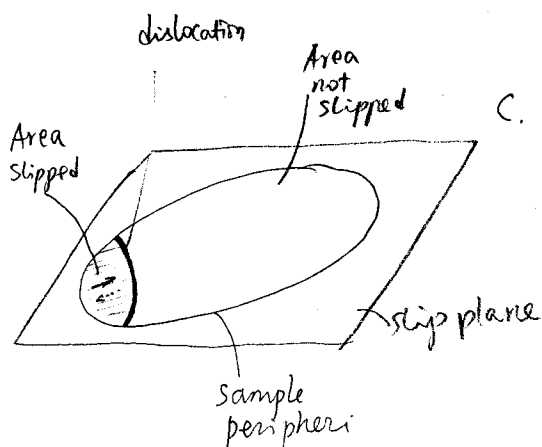 dislocation
Area
not
slipped
C.
Area
slipped
slip plane
sample
peripheri